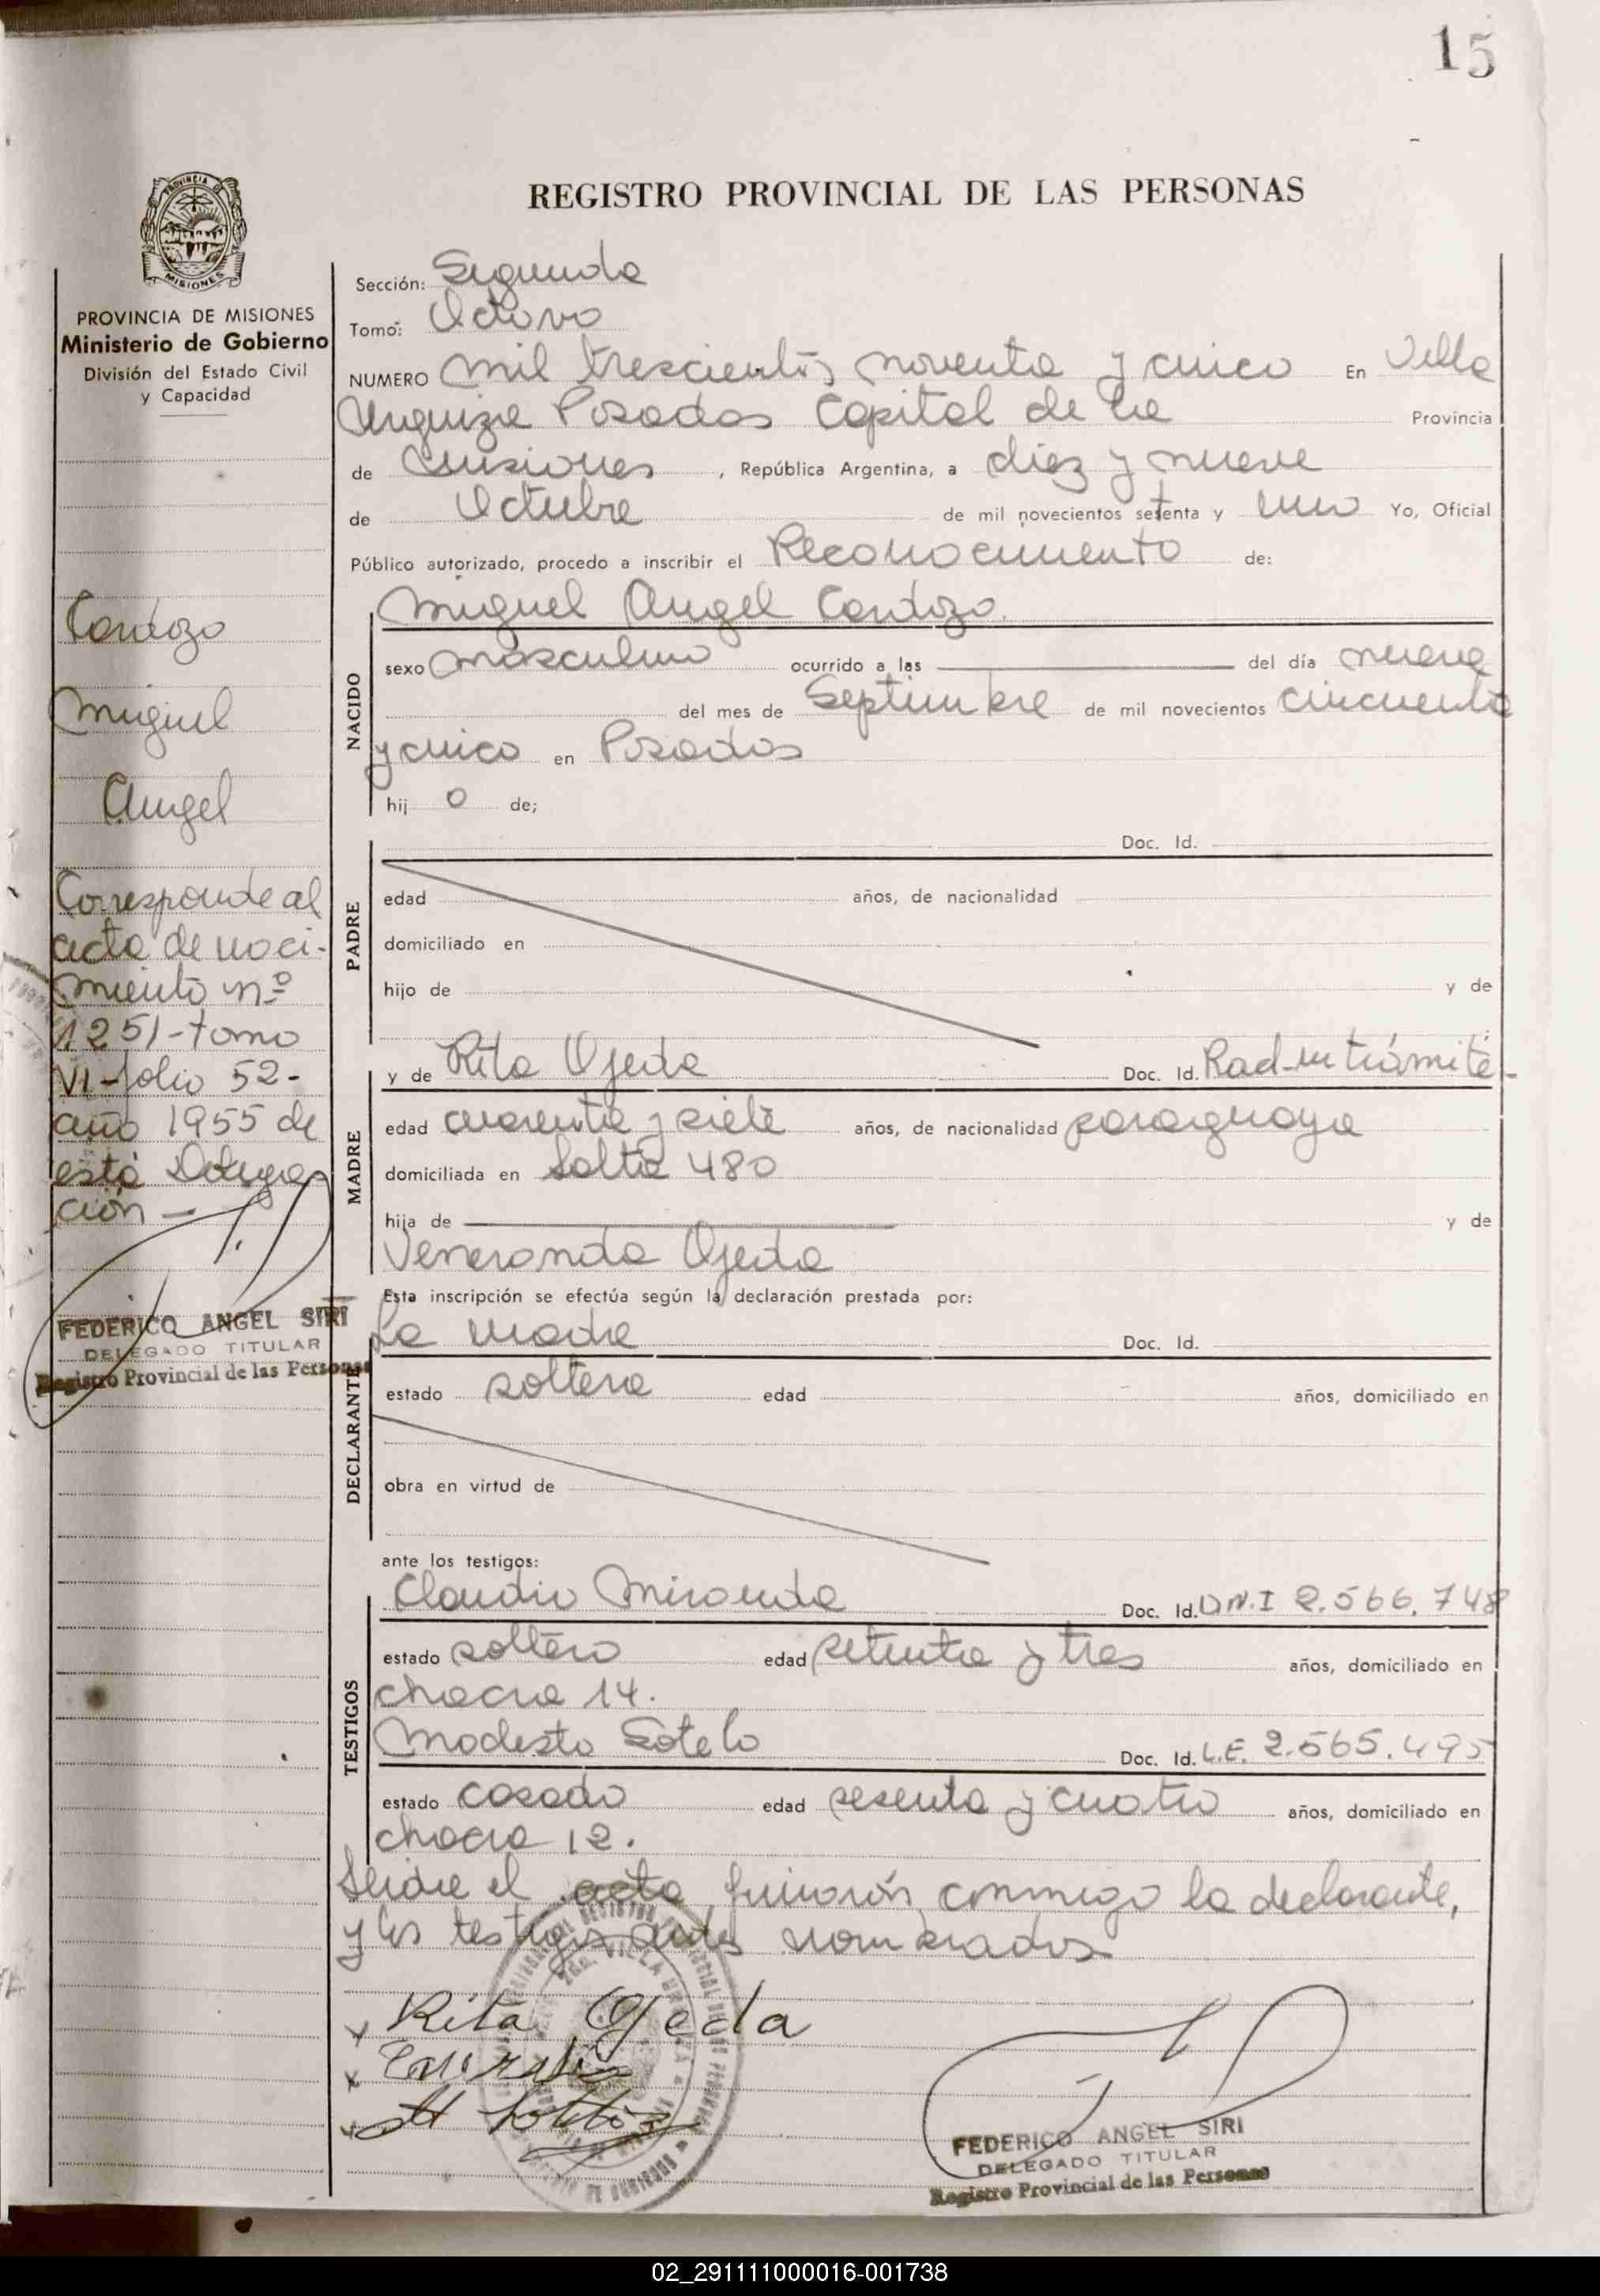 15
REGISTRO PROVINCIAL DE LAS PERSONAS
PROVINCIA DE
MISIONES
PROVINCIA DE MISIONES
Ministerio de Gobierno
División del Estado Civil
y Capacidad
Cardozo
Miguel
Angel
Corresponde al
acta de naci-
miento nº
1251-tomo
VI-folio 52-
año 1955 de
esta Delega
ción -
FEDERICO ANGEL SIRI
DELEGADO TITULAR
Registro Provincial de las Personas
Sección: Segunda
Tomo: Octavo
NUMERO mil trescientos noventa y cinco En Villa
Urquiza Posadas Capital de la Provincia
de Misiones, República Argentina, a diez y nueve
de Octubre de mil novecientos setenta y uno Yo, Oficial
Público autorizado, procedo a inscribir el Reconocimiento de:
Miguel Angel Cardozo.
NACIDO
sexo masculino ocurrido a las del día nueve
del mes de Septiembre de mil novecientos cincuenta
y cinco en Posadas
hij o de;
PADRE
Doc. Id.
edad años, de nacionalidad
domiciliado en
hijo de y de
MADRE
y de Rita Ojeda Doc. Id. Rad-en trámite-
edad cuarenta y siete años, de nacionalidad paraguaya
domiciliada en Salta 480
hija de y de
Veneranda Ojeda
Esta inscripción se efectúa según la declaración prestada por:
DECLARANTE
La madre Doc. Id.
estado soltera edad años, domiciliado en
obra en virtud de
ante los testigos:
TESTIGOS
Claudio Miranda Doc. Id. D.N.I 2.566.748
estado soltero edad setenta y tres años, domiciliado en
chacra 14.
Modesto Sotelo Doc. Id. L.E. 2.565.495
estado casado edad sesenta y cuatro años, domiciliado en
chacra 12.
Leida el acta firmaron conmigo la declarante,
y los testigos antes nombrados
x Rita Ojeda
x
x
FEDERICO ANGEL SIRI
DELEGADO TITULAR
Registro Provincial de las Personas
02_291111000016-001738